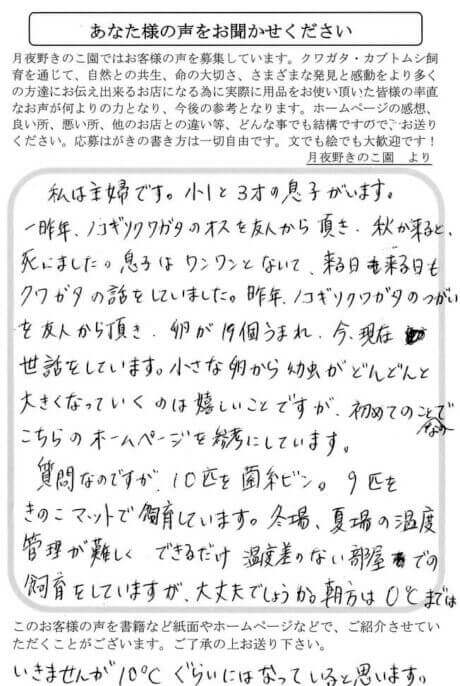 あなた様の声をお聞かせください
月夜野きのこ園ではお客様の声を募集しています。クワガタ・カブトムシ飼
育を通じて、自然との共生、命の大切さ、さまざまな発見と感動をより多く
の方達にお伝え出来るお店になる為に実際に用品をお使い頂いた皆様の率直
なお声が何よりの力となり、今後の参考となります。ホームページの感想、
良い所、悪い所、他のお店との違い等、どんな事でも結構ですので、お送り
ください。応募はがきの書き方は一切自由です。文でも絵でも大歓迎です！
月夜野きのこ園　より
私は主婦です。小1と3才の息子がいます。
一昨年、ノコギリクワガタのオスを友人から頂き、秋が来ると、
死にました。息子はワンワンとないて、来る日も来る日も
クワガタの話をしていました。昨年、ノコギリクワガタのつがい
を友人から頂き、卵が19個うまれ、今、現在
世話をしています。小さな卵から幼虫がどんどんと
大きくなっていくのは嬉しいことですが、初めてのことで
なので
こちらのホームページを参考にしています。
質問なのですが、10匹を菌糸ビン。9匹を
きのこマットで飼育しています。冬場、夏場の温度
管理が難しく できるだけ 温度差のない部屋での
飼育をしていますが、大丈夫でしょうか 朝方は0℃までは
このお客様の声を書籍など紙面やホームページなどで、ご紹介させてい
ただくことがございます。ご了承の上お送り下さい。
いきませんが10℃ぐらいにはなっていると思います。